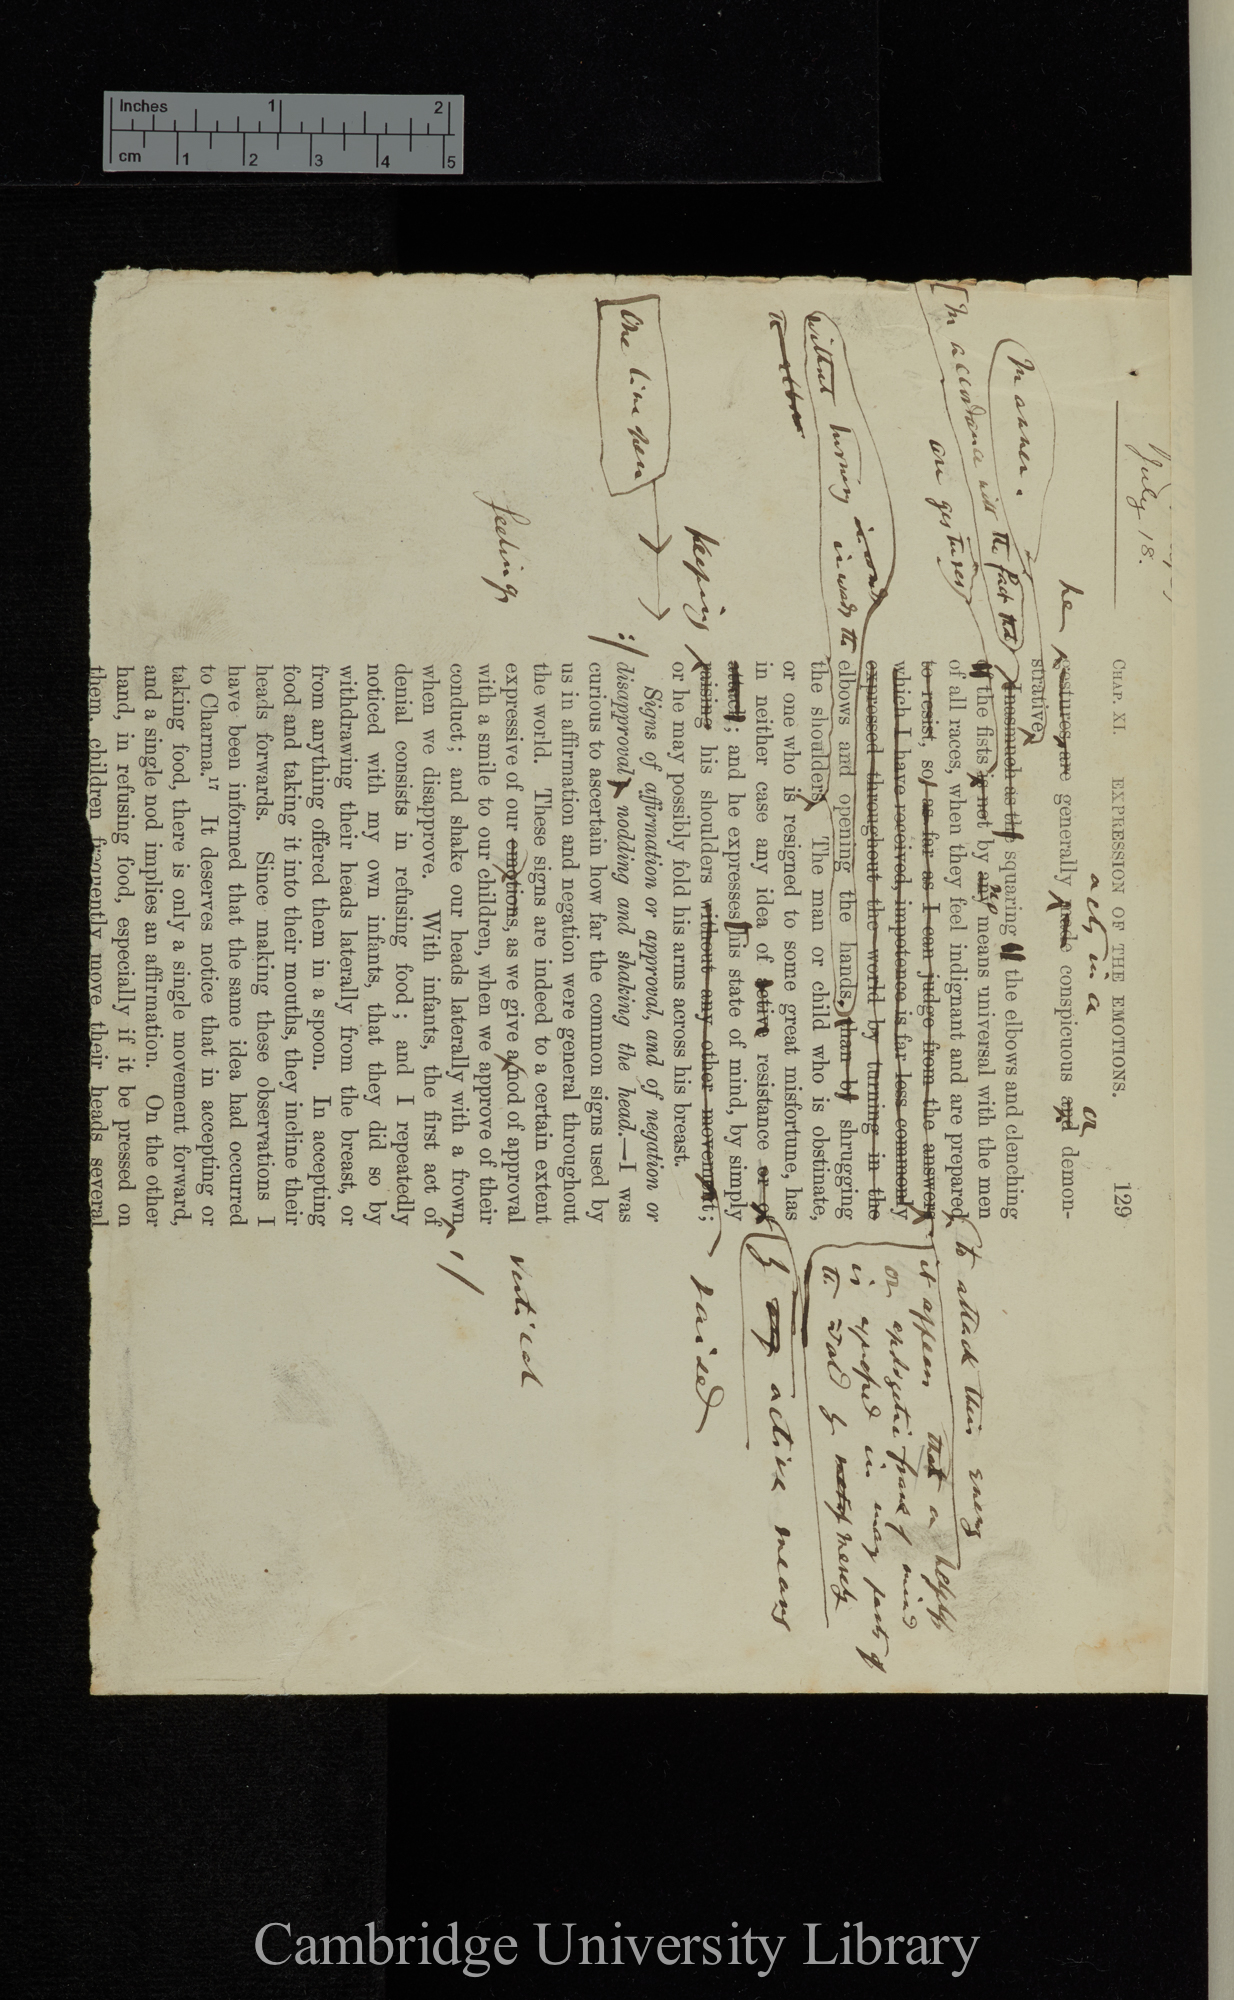 Inches 1 2
cm 1 2 3 4 5
July 18.
CHAP. XI. EXPRESSION OF THE EMOTIONS. 129
he acts in a or
gestures are generally made conspicuous and demon-
strative.
manner.
[In accordance with the fact that
Inasmuch as the squaring of the elbows and clenching
no
of the fists is not by any means universal with the men
are gestures
of all races, when they feel indignant and are prepared
to attack their enemy
to resist, so as far as I can judge from the answers
it appears that a helpless
which I have received, impotence is far less commonly
or apologetic frame of mind
expressed throughout the world by turning in the
is expressed in many parts of
without turning inwards the
elbows and opening the hands, than by shrugging
the world by merely
the shoulders. The man or child who is obstinate,
or one who is resigned to some great misfortune, has
in neither case any idea of active resistance or of
by active means
attack; and he expresses this state of mind, by simply
keeping
raising his shoulders without any other movement;
raised
or he may possibly fold his arms across his breast.
One line
Signs of affirmation or approval, and of negation or
disapproval, nodding and shaking the head.—I was
curious to ascertain how far the common signs used by
us in affirmation and negation were general throughout
the world. These signs are indeed to a certain extent
feelings
expressive of our emotions, as we give a nod of approval
vertical
with a smile to our children, when we approve of their
conduct; and shake our heads laterally with a frown
when we disapprove. With infants, the first act of
denial consists in refusing food; and I repeatedly
noticed with my own infants, that they did so by
withdrawing their heads laterally from the breast, or
from anything offered them in a spoon. In accepting
food and taking it into their mouths, they incline their
heads forwards. Since making these observations I
have been informed that the same idea had occurred
to Charma.17 It deserves notice that in accepting or
taking food, there is only a single movement forward,
and a single nod implies an affirmation. On the other
hand, in refusing food, especially if it be pressed on
them, children frequently move their heads several
Cambridge University Library